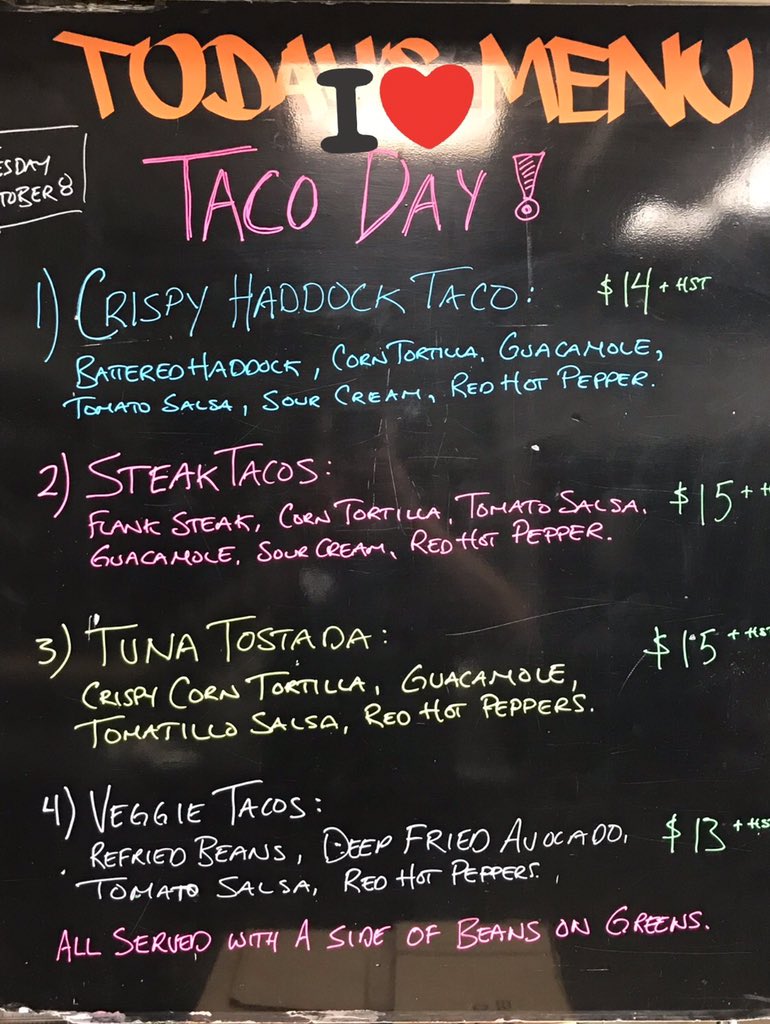 TODAY'S MENU
I ❤
ESDAY
TOBER 8
TACO DAY!
1) CRISPY HADDOCK TACO: $14 + HST
BATTERED HADDOCK, CORN TORTILLA, GUACAMOLE,
TOMATO SALSA, SOUR CREAM, RED HOT PEPPER.
2) STEAK TACOS: $15 + H
FLANK STEAK, CORN TORTILLA, TOMATO SALSA,
GUACAMOLE, SOUR CREAM, RED HOT PEPPER.
3) TUNA TOSTADA: $15 + HST
CRISPY CORN TORTILLA, GUACAMOLE,
TOMATILLO SALSA, RED HOT PEPPERS.
4) VEGGIE TACOS: $13 + HST
REFRIED BEANS, DEEP FRIED AVOCADO,
TOMATO SALSA, RED HOT PEPPERS.,
ALL SERVED WITH A SIDE OF BEANS ON GREENS.